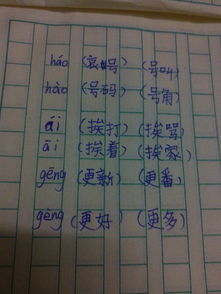 háo（哀号）（号叫）
hào（号码）（号角）
ái（挨打）（挨骂）
āi（挨着）（挨家）
gēng（更新）（更番）
gèng（更好）（更多）